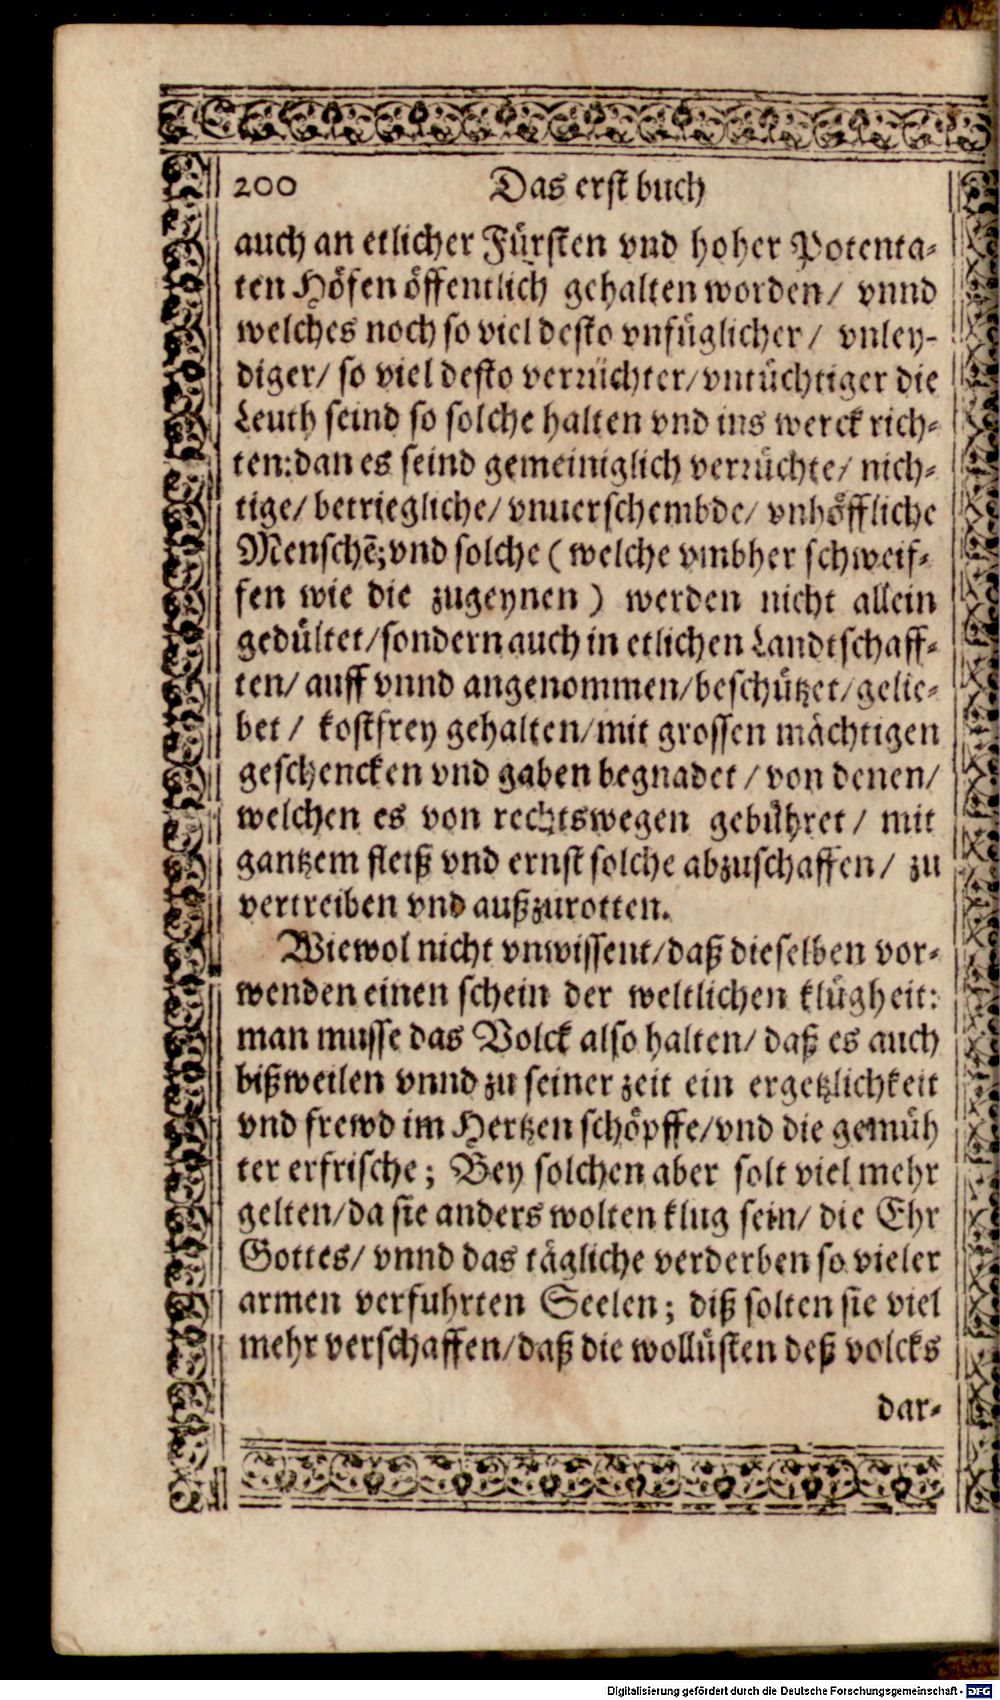 200 Das erst buch
auch an etlicher Fürsten vnd hoher Potenta-
ten Höfen öffentlich gehalten worden/ vnnd
welches noch so viel desto vnfüglicher/ vnley-
diger/ so viel desto verrüchter/ vntüchtiger die
Leuth seind so solche halten vnd ins werck rich-
ten: dan es seind gemeiniglich verrüchte/ nich-
tige/ betriegliche/ vnuerschembde/ vnhöffliche
Menschẽ; vnd solche ( welche vmbher schweif-
fen wie die zugeynen ) werden nicht allein
gedültet/ sondern auch in etlichen Landtschaff-
ten/ auff vnnd angenommen/ beschützet/ gelie-
bet / kostfrey gehalten/ mit grossen mächtigen
geschencken vnd gaben begnadet / von denen/
welchen es von rechtswegen gebühret / mit
gantzem fleiß vnd ernst solche abzuschaffen / zu
vertreiben vnd außzurotten.
Wiewol nicht vnwissent/ daß dieselben vor-
wenden einen schein der weltlichen klügheit:
man musse das Volck also halten/ daß es auch
bißweilen vnnd zu seiner zeit ein ergetzlichkeit
vnd frewd im Hertzen schöpffe/ vnd die gemüh
ter erfrische; Bey solchen aber solt viel mehr
gelten/ da sie anders wolten klug sein/ die Ehr
Gottes/ vnnd das tägliche verderben so vieler
armen verfuhrten Seelen; diß solten sie viel
mehr verschaffen/ daß die wollüsten deß volcks
dar-
Digitalisierung gefördert durch die Deutsche Forschungsgemeinschaft - DFG